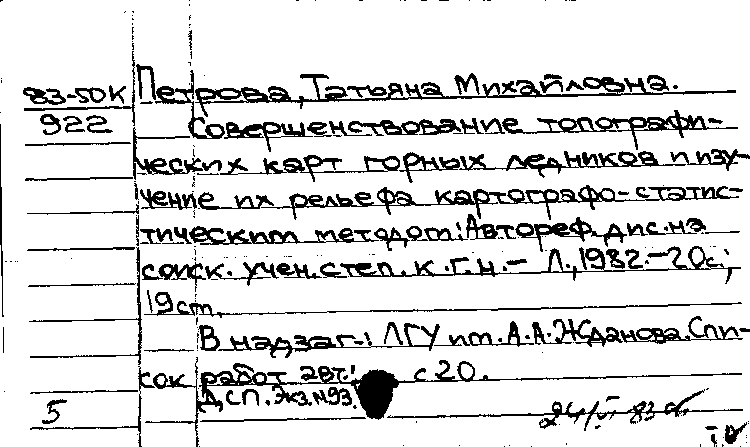 83-50К Петрова, Татьяна Михайловна.
922 Совершенствование топографи-
ческих карт горных ледников и изу-
чение их рельефа картографо-статис-
тическим методом: Автореф. дис. на
соиск. учен. степ. к. г. н. - Л., 1982. - 20с.;
19 cm.
В надзаг.: ЛГУ им. А. А. Жданова. Спи-
сок работ авт.: с 20.
Д, СП. Экз. №93.
5 24/VI 83